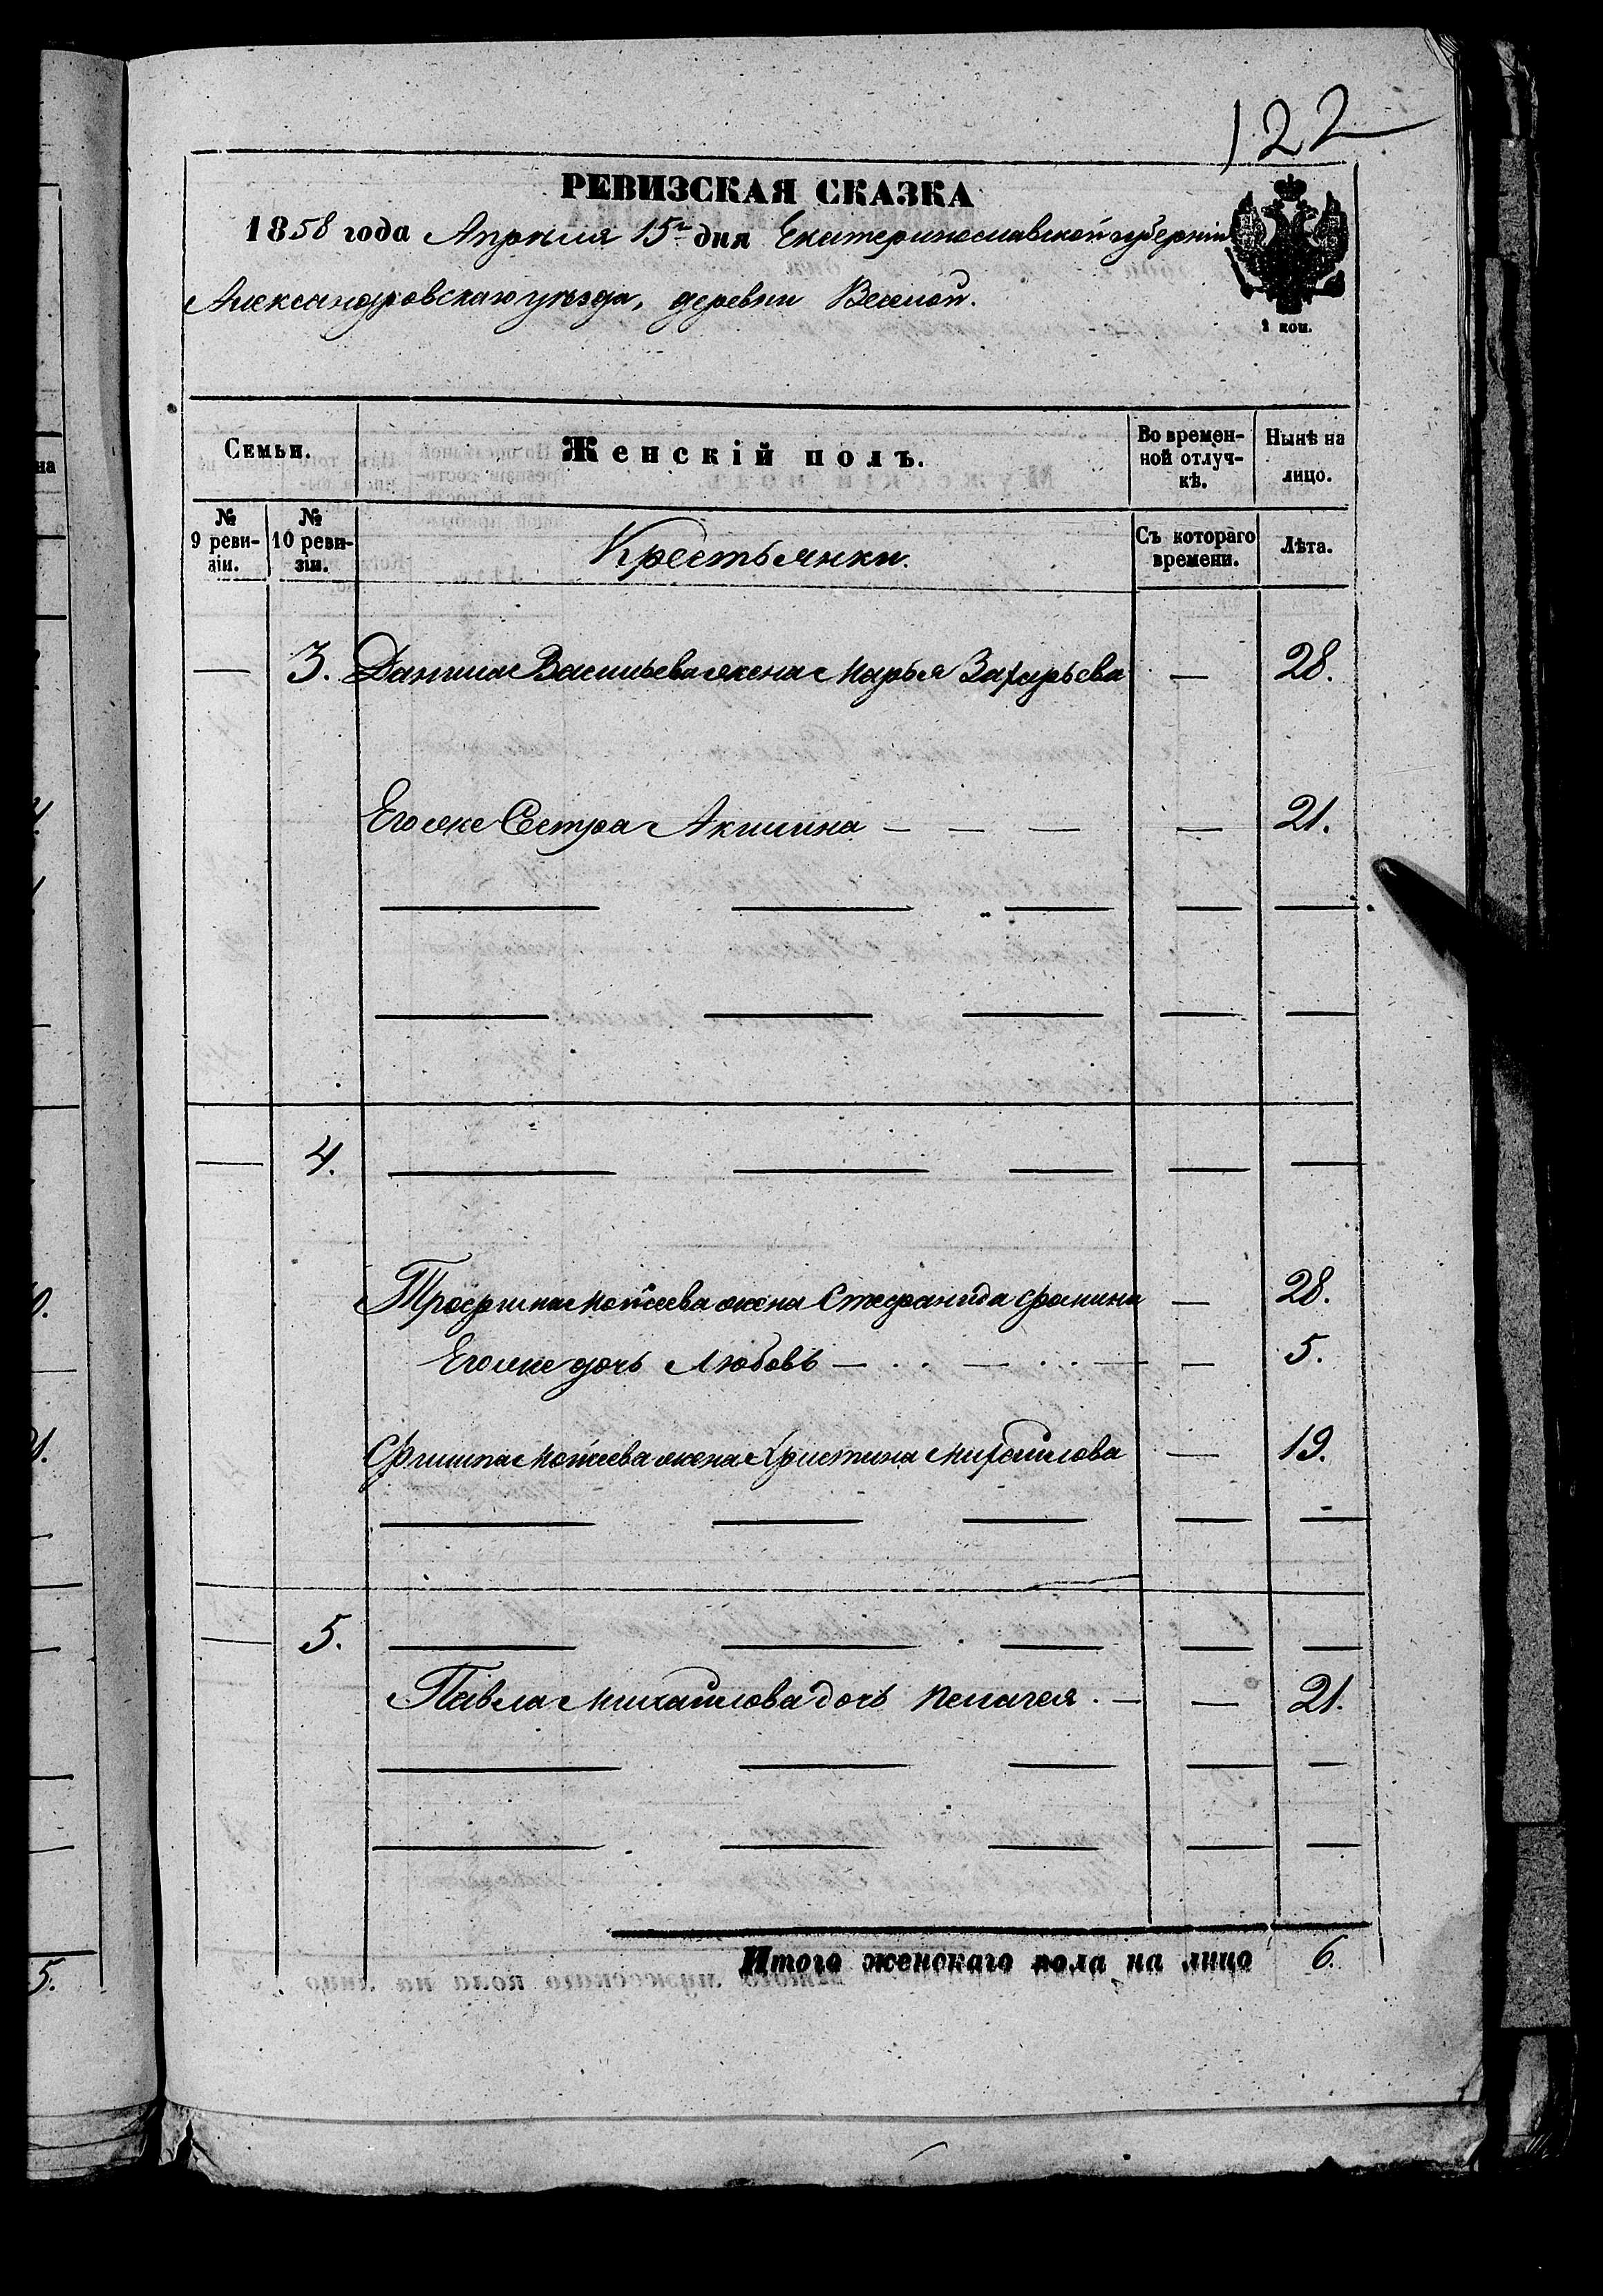 122
РЕВИЗСКАЯ СКАЗКА
1858 года Апреля 15го дня Екатеринославской губернии
Александровскаго уезда, деревни Веселой.
1 коп.
Семьи. Женскій полъ. Во времен-ной отлуч-кѣ. Нынѣ на лицо.
№ 9 реви-зіи. № 10 реви-зіи. Крестьянки. Съ котораго времени. Лѣта.
— 3. Данила Васильева жена Марья Захарьева — 28.
Его же Сестра Акилина — — — — 21.
— 4. — — — — —
Трофима Мотеева жена Стефанида Фомина — 28.
Его же дочь Любовь — — — — 5.
Филипа Мотеева жена Христина Михайлова — 19.
— 5. — — — — —
Павла Михайлова дочь Пелагея. — — 21.
Итого женскаго пола на лицо 6.
5.